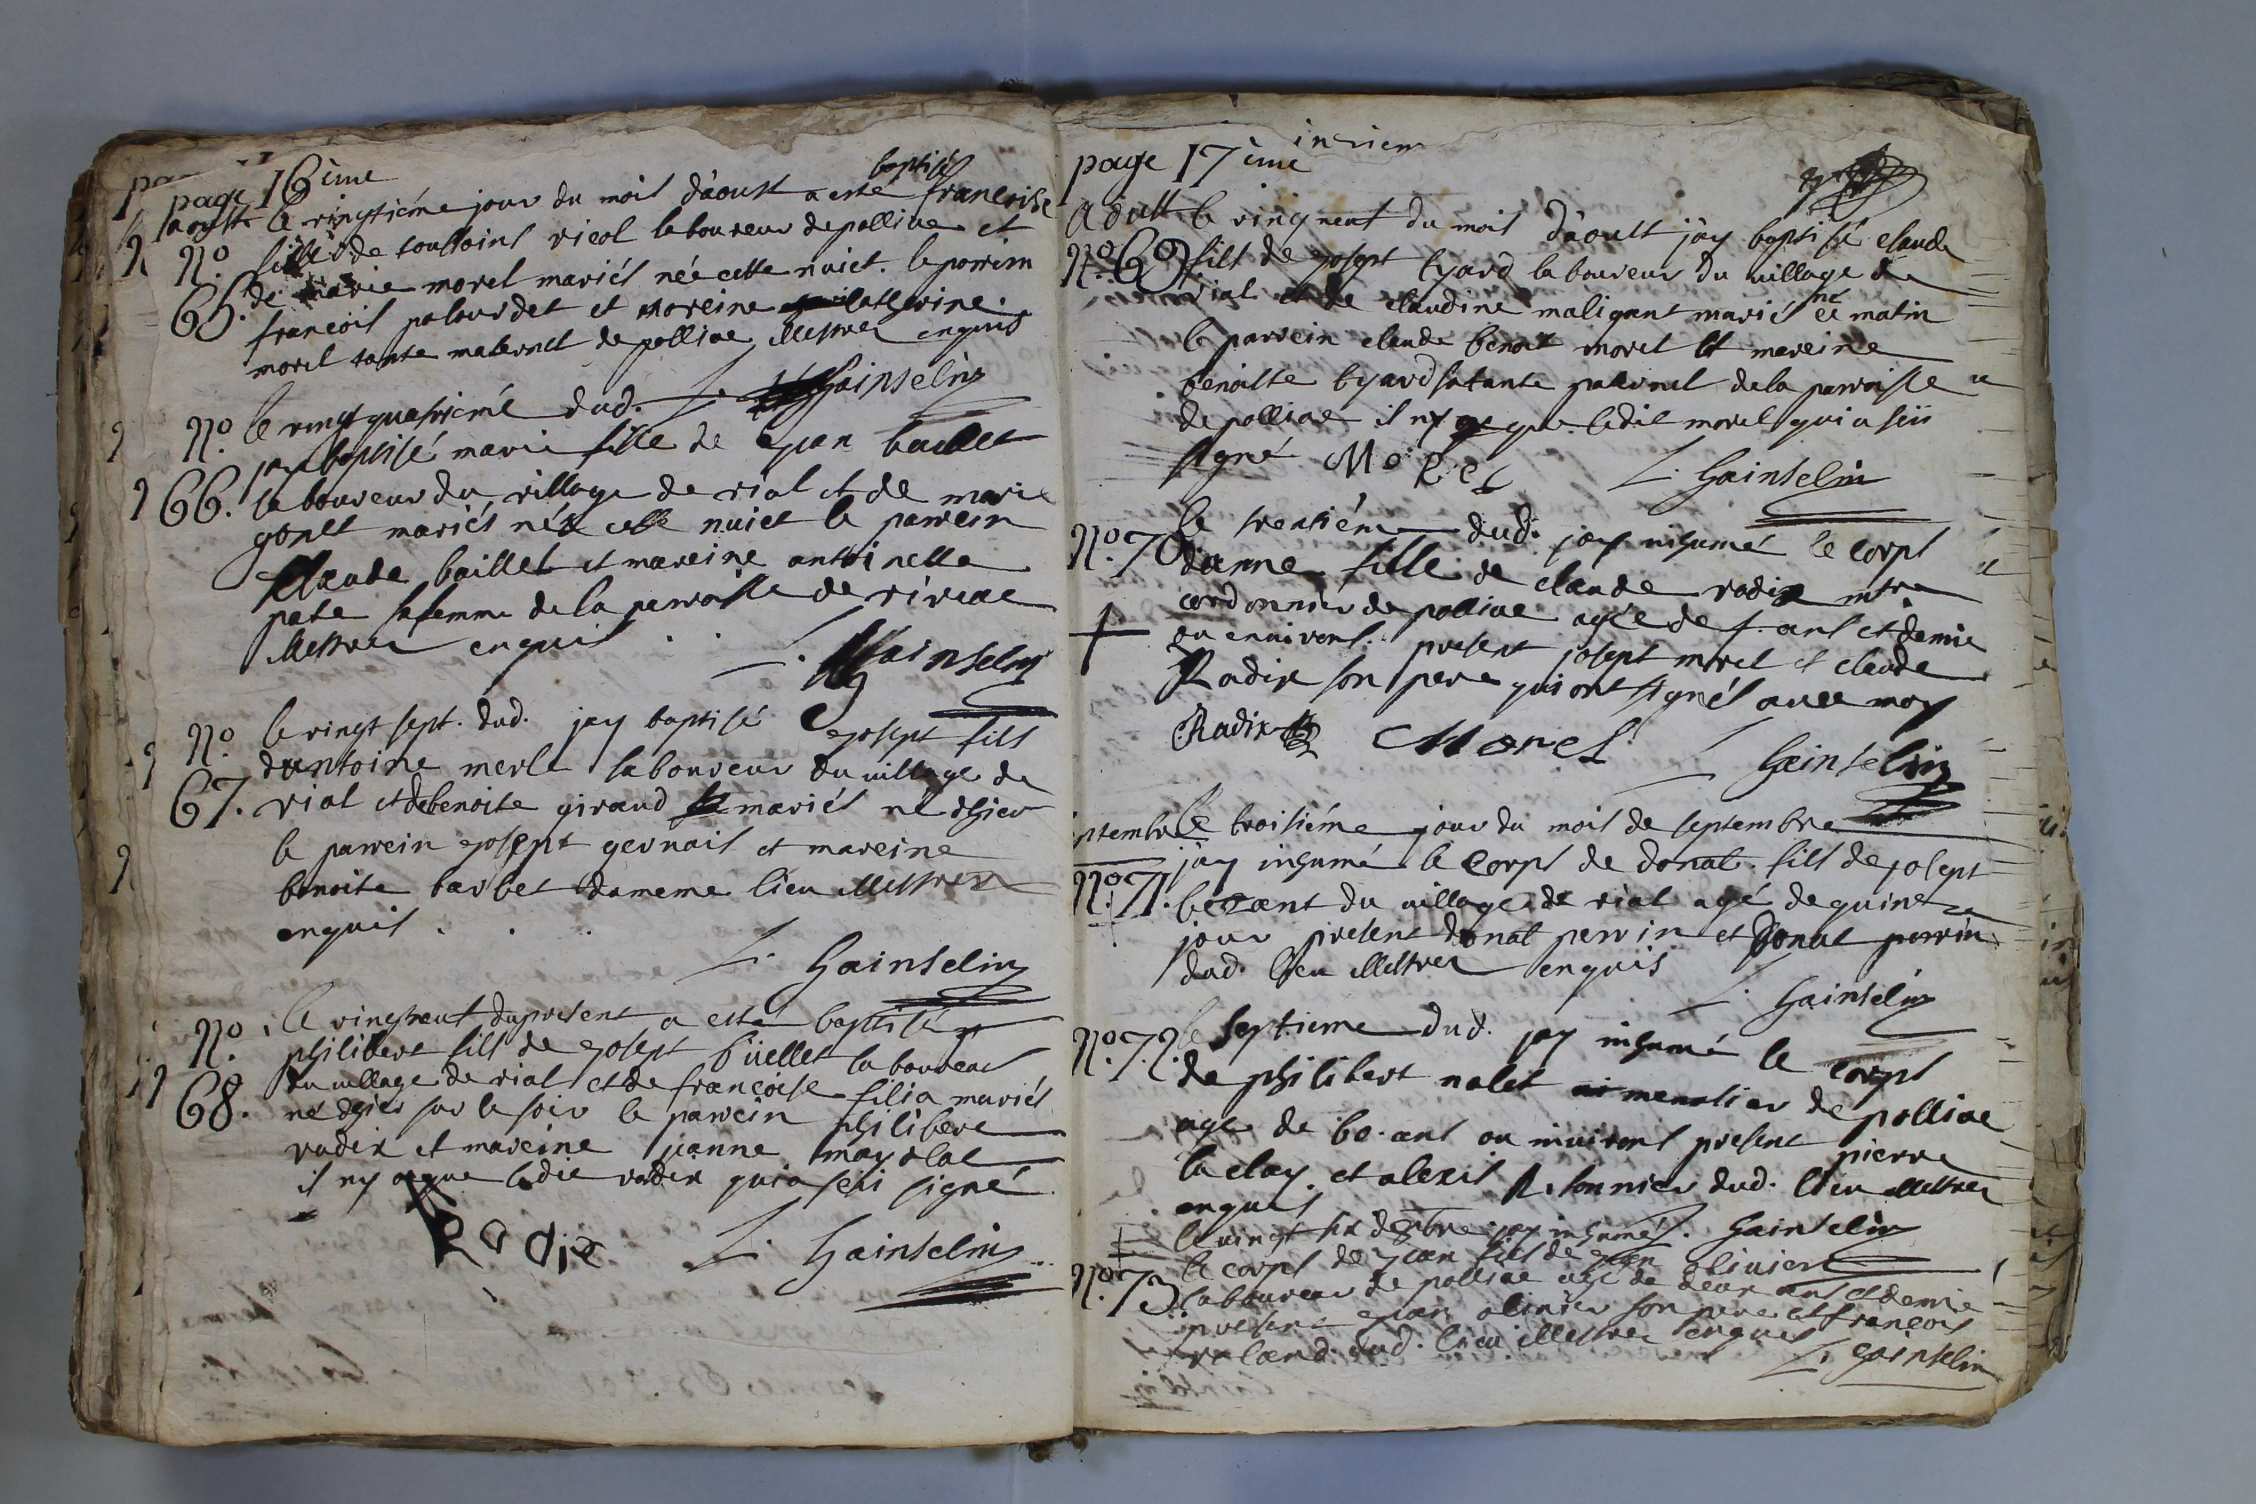 page 16 ème
aoust le vingtiéme jour du mois d'àoust a esté baptisée francoise
No. 65. fille de toussains vicol laboureur de polliae et
de marie morel mariés née cette nuict. le parrein
francois palourdet et mareine catherine
morel tante maternel de polliae illettrez enquis
L. Gainselin
No. 66. le vingt quatriémé dud.
jay baptisé marie fille de jean baillet
laboureur du village de rial et de marie
gonet mariés née cette nuict le parrein
Claude baillet et mareine antoinette
pate sa femme de la parroisse de
illettrez enquis
L. Gainselin
No. 67. le vingt sept. dud. jay baptisé josept fils
d'antoine merle laboureur du village de
rial et de benoite giraud mariés né dhier
le parrein josept gervais et mareine
benoite barbet du meme lieu illettrez
enquis
L. Gainselin
No. 68. le vingtneuf du present a esté baptisé
philibert fils de josept büellet laboureur
du village de rial et de francoise filia mariés
né dhier sur le soir le parrein philibert
radix et mareine janne
il ny a que ledit radix qui a seü signé
Radix L. Gainselin
page 17 ème
Aoust le vingneuf du mois d'àoust jày baptisé claude
No. 69. fils de josept byard laboureur du village de
rial et de claudine maligant mariés né ce matin
le parrein claude benoit morel et mareine
benoiste byard sa tante paternel de la parroisse
de polliae il ny a que ledit morel qui a seü
signé Morel
L. Gainselin
No. 70 le trentiéme dud. jay inhumé le corps
d'anne fille de claude radix mtre
cordonnier de polliae agée de 7. ans et demie
ou environs. present josept morel et claude
Radix son pere qui ont signés avec moy
Radix Morel
L. Gainselin
septembre le troisiéme jour du mois de septembre
jay inhumé le corps de donat fils de josept
No. 71. bezant du village de rial agé de quinze
jour present donat perrin et Donat perrin
dud. lieu illettrez enquis
L. Gainselin
No. 72. le septieme dud. jay inhumé le corps
de philibert nalet menusier de polliae
agé de 60. ans ou invirons present pierre
la clay. et alexis dud. lieu illettrez
enquis
L. Gainselin
le vingt six dud. jay inhumé
No. 73. le corps de jean fils de jean olivier
laboureur de polliae agé de deux ans et demie
present jean olivier son pere et francois
roland dud. lieu illettrez enquis
L. Gainselin